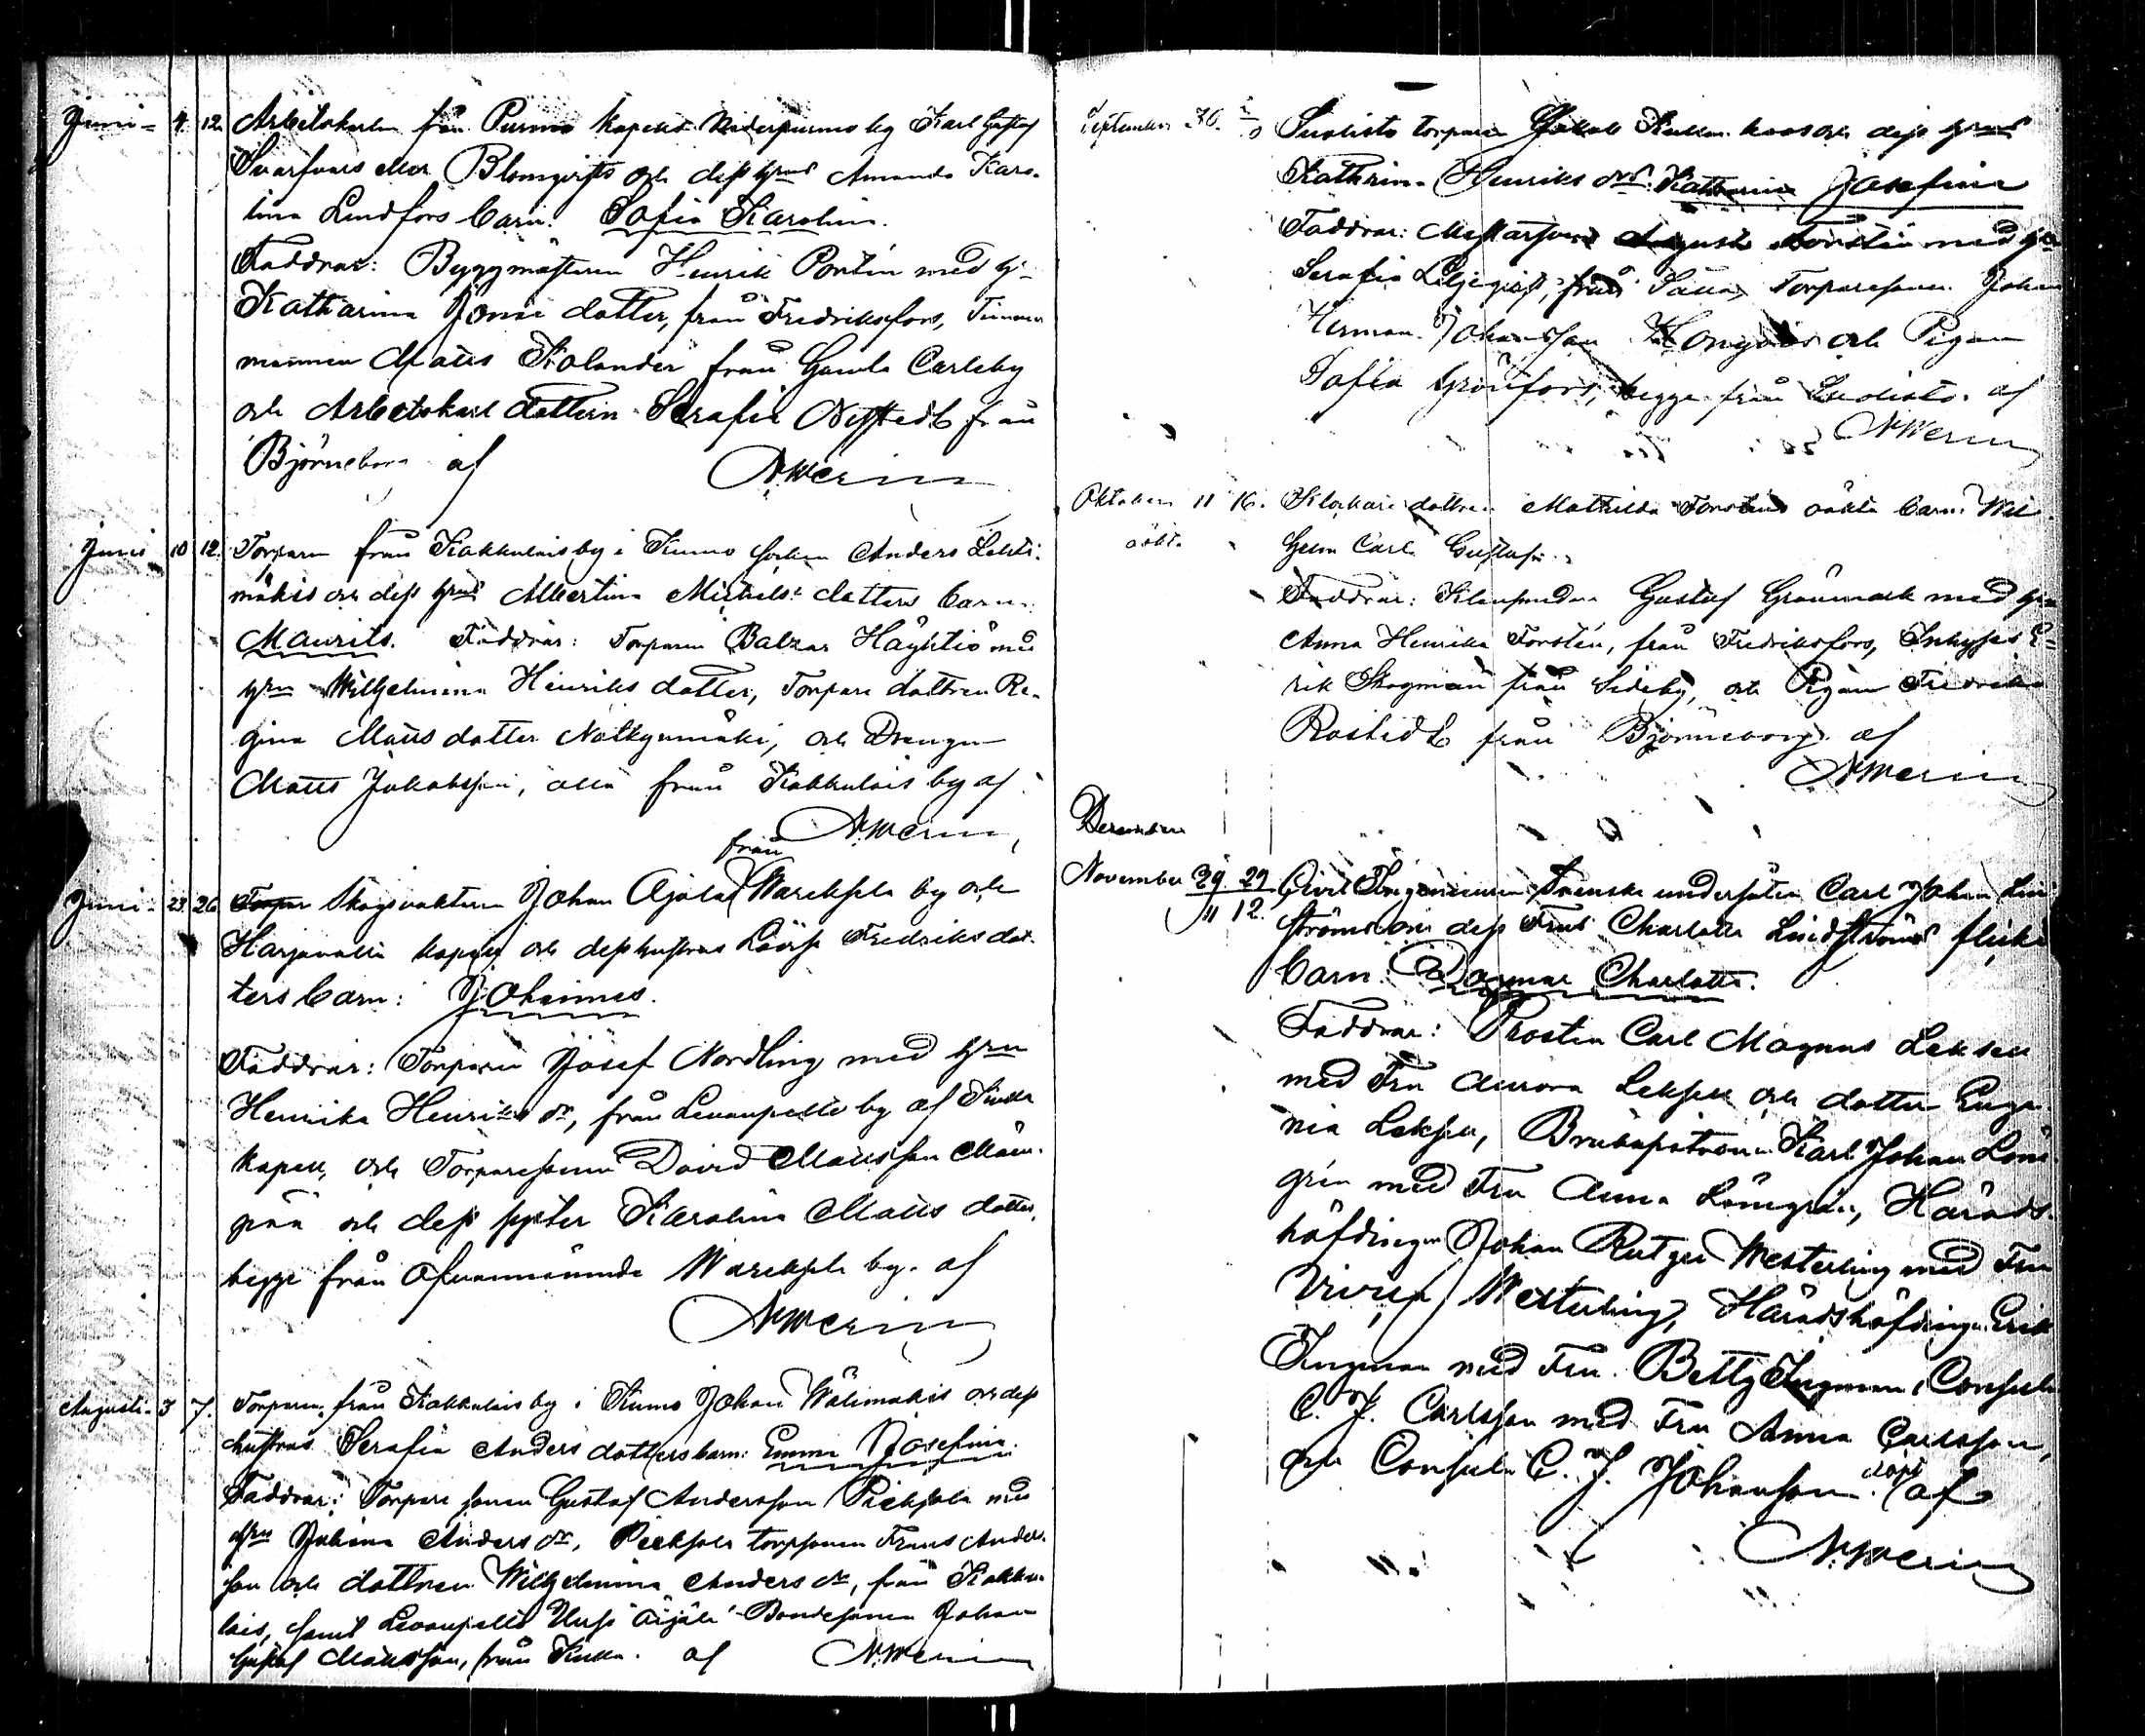 Juni - 4. 12. Arbetskarlen från Purmo kapells Nederpurmo by Karl Gustaf
Svarfvars eller Blomqvists och dess hrus Amanda Karo-
lina Lindfors barn: Sofia Karolina.
Faddrar: Byggmästaren Henrik Portin med h-
Katharina Jonae dotter, från Fredriksfors, Timmer
mannen Matts Kolander från Gamla Carleby
och Arbetskarl dottern Serafia Nystedt från
Björneborg af
A Merin
Juni 10 12. Torparen från Kakkulais by i Kumo socken Anders Lehti-
mäkis och dess hrus Albertina Michels dotters barn:
Maurits. Faddrar: Torparen Balzar Häyhtiö med
hrun Wilhelmina Henriks dotter, Torpare dottren Re-
gina Matts dotter Nälkymäki, och Drengen
Matts Jakobsson, alla från Kakkulais by af
A Merin
från
Juni - 23. 26. Torpar Skogsvaktaren Johan Ajolas by och
Harjavalta kapell och dess hustrus Lovisa Fredriks dot-
ters barn: Johannes.
Faddrar: Torparen Josef Nordling med hrun
Henrika Henriks dr, från Levanpelto by af
kapell, och Torparesonen David Mattsson
och dess syster Karolina Matts dotter,
begge från ofvannämnde by. af
A Merin
Augusti - 3 7. Torparen från Kakkulais by i Kumo Johan Wälimäkis och dess
hustrus Serafia Anders dotters barn: Emma Josefina.
Faddrar: Torpare sonen Gustaf Andersson med
hrun Anders dr, torpsonen Frans Anders-
son och dottren Wilhelmina Anders dr, från Kakku-
lais, samt Levanpelto Äijälä Bondesonen Johan
Gustaf Mattsson, från af A Merin
September 30. Suolisto torparen Jakob och dess hrus
Kathrina Henriks drs: Katharina Josefina
Faddrar: August Forstén med h
Serafia Liljeqvist, från Torparesonen Johan
Herman Johansson och Pigan
Sofia Grönfors, begge från Suolisto. af
A Merin
Oktober 11 16. Klockare dottren Mathilda Forsténs oäkta barn: Wil
oäkta helm Carl Gustaf.
Faddrar: Gustaf Grönmark med hru
Anna Henrika Forstén, från Fredriksfors, Inhyses E-
rik Skogman från Sideby, och Pigan Fredrika
Rostedt från Björneborg af
A Merin
December
November 29 29 Civil Ingenieuren Svenska undersåten Carl Johan Lind
11 12. ströms och dess Frus Charlotta Lindströms flicke
barn: Dagmar Charlotta.
Faddrar: Prosten Carl Magnus Leksell
med Fru Aurora Leksell och dotter Euge-
nia Leksell, Brukspatronen Karl Johan Lönn
grén med Fru Anna Lönngrén, Härads-
höfdingen Johan Rutger Westerling med Fru
Westerling, Häradshöfdingen Erik
Ingman med Fru Betty Ingman, Consuln
C. J. Carlsson med Fru Anna Carlsson,
och Consuln C. F. Johansson. döpt af
A Merin